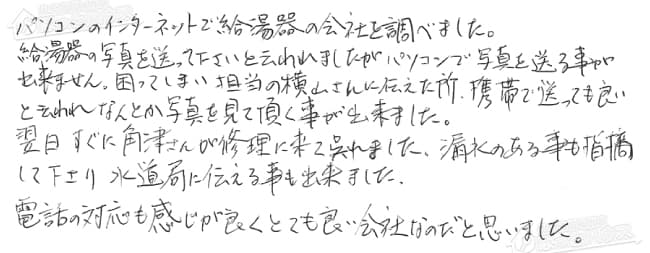 パソコンのインターネットで給湯器の会社を調べました。
給湯器の写真を送って下さいと云われましたがパソコンで写真を送る事が
出来ません。困ってしまい担当の横山さんに伝えた所、携帯で送っても良い
と云われなんとか写真を見て頂く事が出来ました。
翌日すぐに角津さんが修理に来て呉れました、漏水のある事も指摘
して下さり水道局に伝える事も出来ました、
電話の対応も感じが良くとても良い会社なのだと思いました。